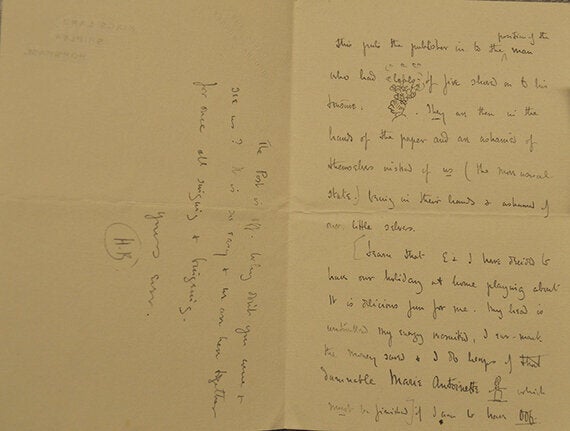 This puts the publisher in to the position of the man
who had coals of fire shied on to his
tonsure. They are then in the
hands of the paper and are ashamed of
themselves instead of us (the more usual
state) being in their hands & ashamed of
our little selves.
[Learn that E & I have decided to
have our holiday at home playing about
It is delicious fun for me. My head is
my energy nourished, I ear-mark
the money saved & I do heaps of that
damnable Marie Antoinette which
must be finished] if I am to have oof.
The Post is off. Why don't you come &
see us? It is so easy & we are here together
for once all singing &
Yours ever.
H.B.
KINGS LAND
SHIPLEY
HORSHAM